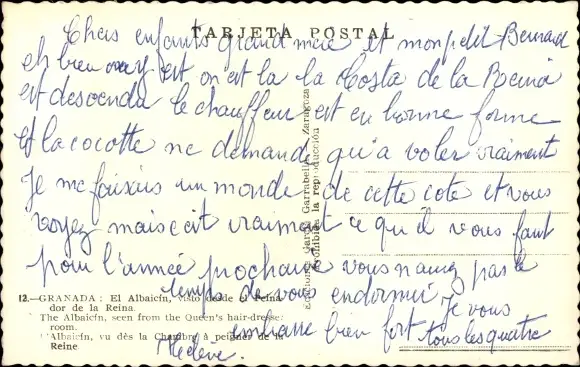 TARJETA POSTAL
Chers enfants grand mère et mon petit Bernard
eh bien on y est on est la la Costa de la Reina
est descendu le chauffeur est en bonne forme
et la cocotte ne demande qu'a voler vraiment
Je me faisais un monde de cette cote et vous
voyez mais c'est vraiment ce qu'il vous faut
pour l'année prochaine vous n'aurez pas le
temps de vous endormir Je vous
embrasse bien fort tous les quatre
Hélève.
12.—GRANADA: El Albaicín, visto desde el Peina-
dor de la Reina.
The Albaicín, seen from the Queen's hair-dresser
room.
L'Albaicín, vu dès la Chambre à peigner de la
Reine.
Ediciones García Garrabella Zaragoza
Prohibida la reproducción